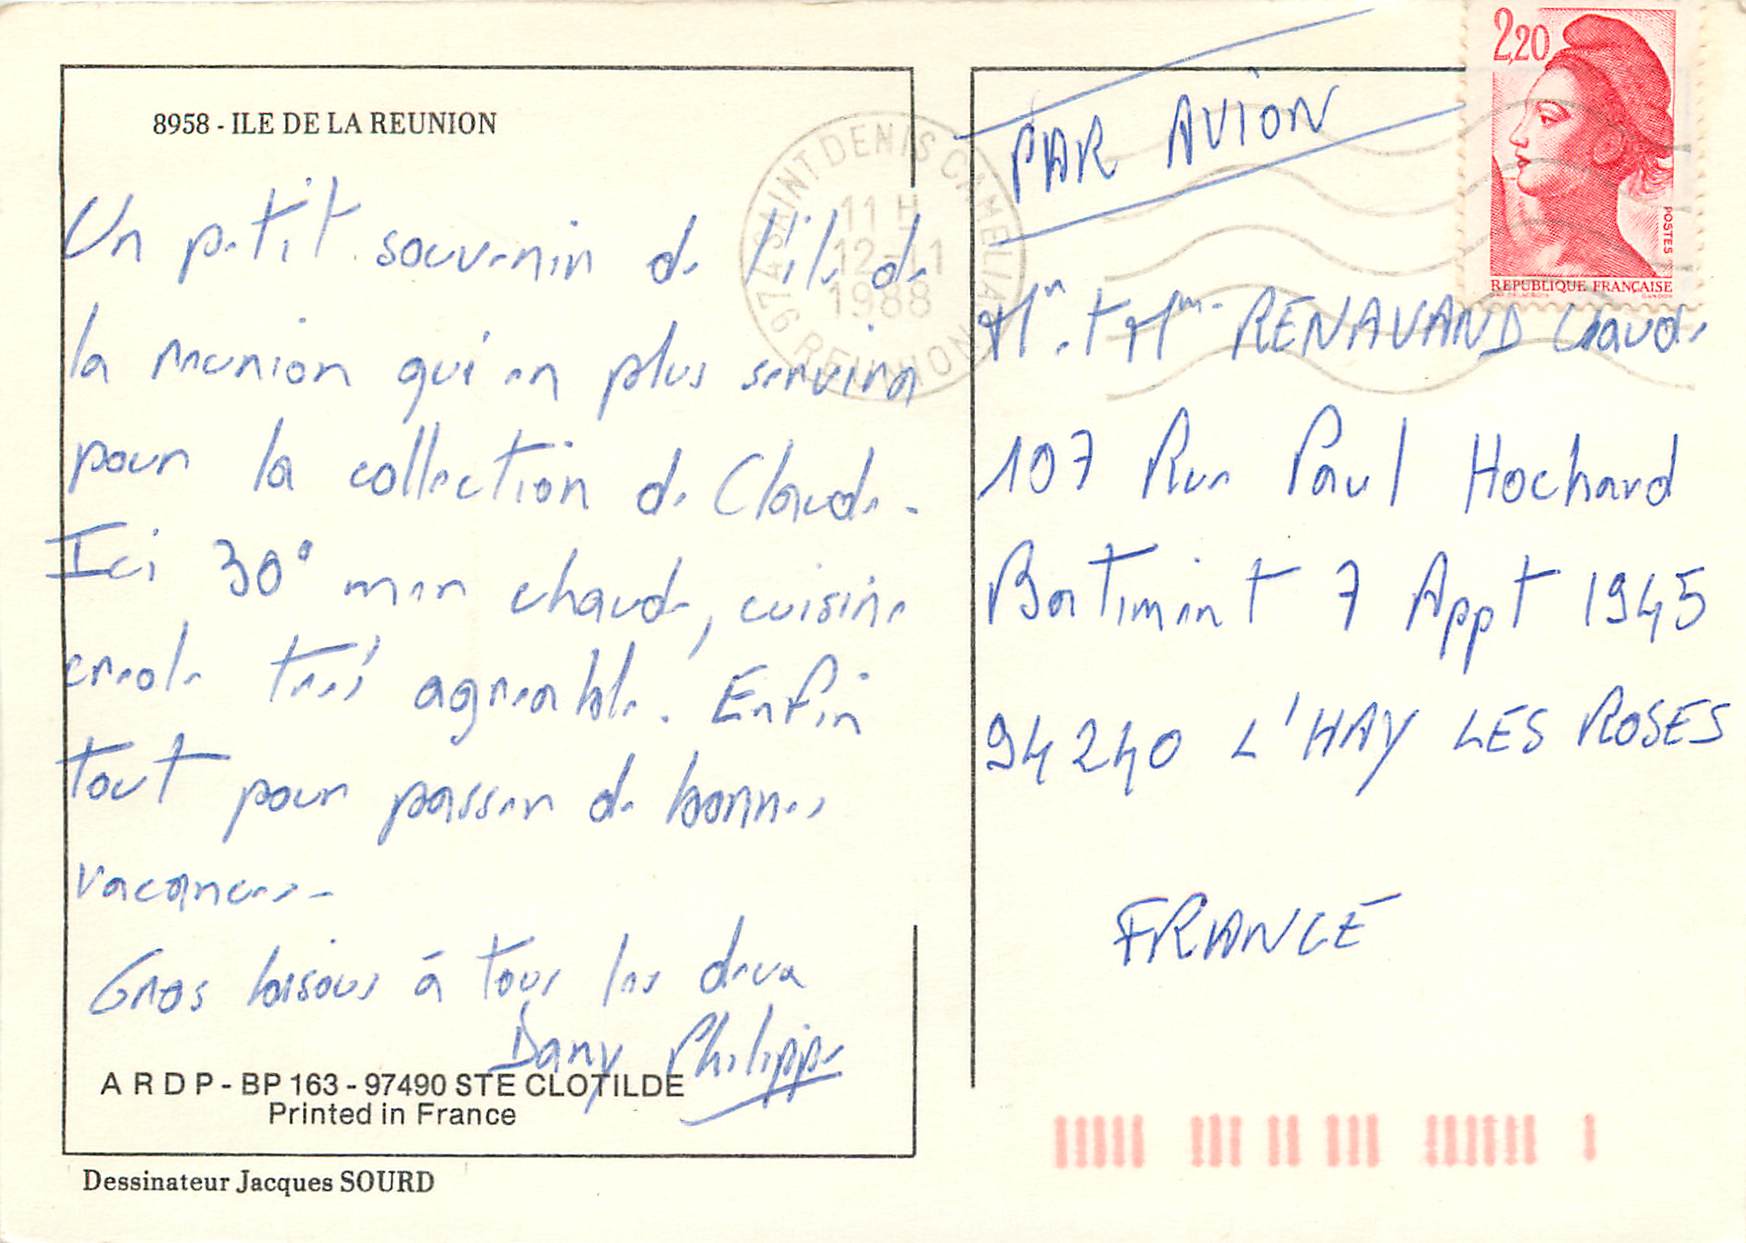 8958 - ILE DE LA REUNION
Un petit souvenir de l'ile de
la reunion qui en plus servira
pour la collection de Claude.
Ici 30° mer chaude, cuisine
creole très agreable. Enfin
tout pour passer de bonnes
vacances.
Gros bisous à tous les deux
Dany Philippe
A R D P - BP 163 - 97490 STE CLOTILDE
Printed in France
Dessinateur Jacques SOURD
974 SAINT DENIS CAMELIAS
11 H
12 - 11
1988
REUNION
PAR AVION
2,20
POSTES
REPUBLIQUE FRANÇAISE
Mr et Mme RENAVAND Claude
107 Rue Paul Hochard
Batiment 7 Appt 1945
94240 L'HAY LES ROSES
FRANCE